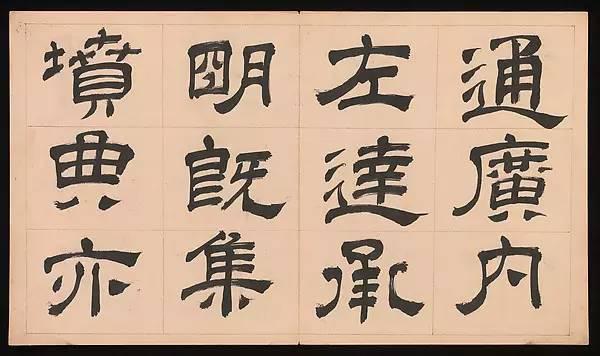 通廣內
左達承
明既集
墳典亦